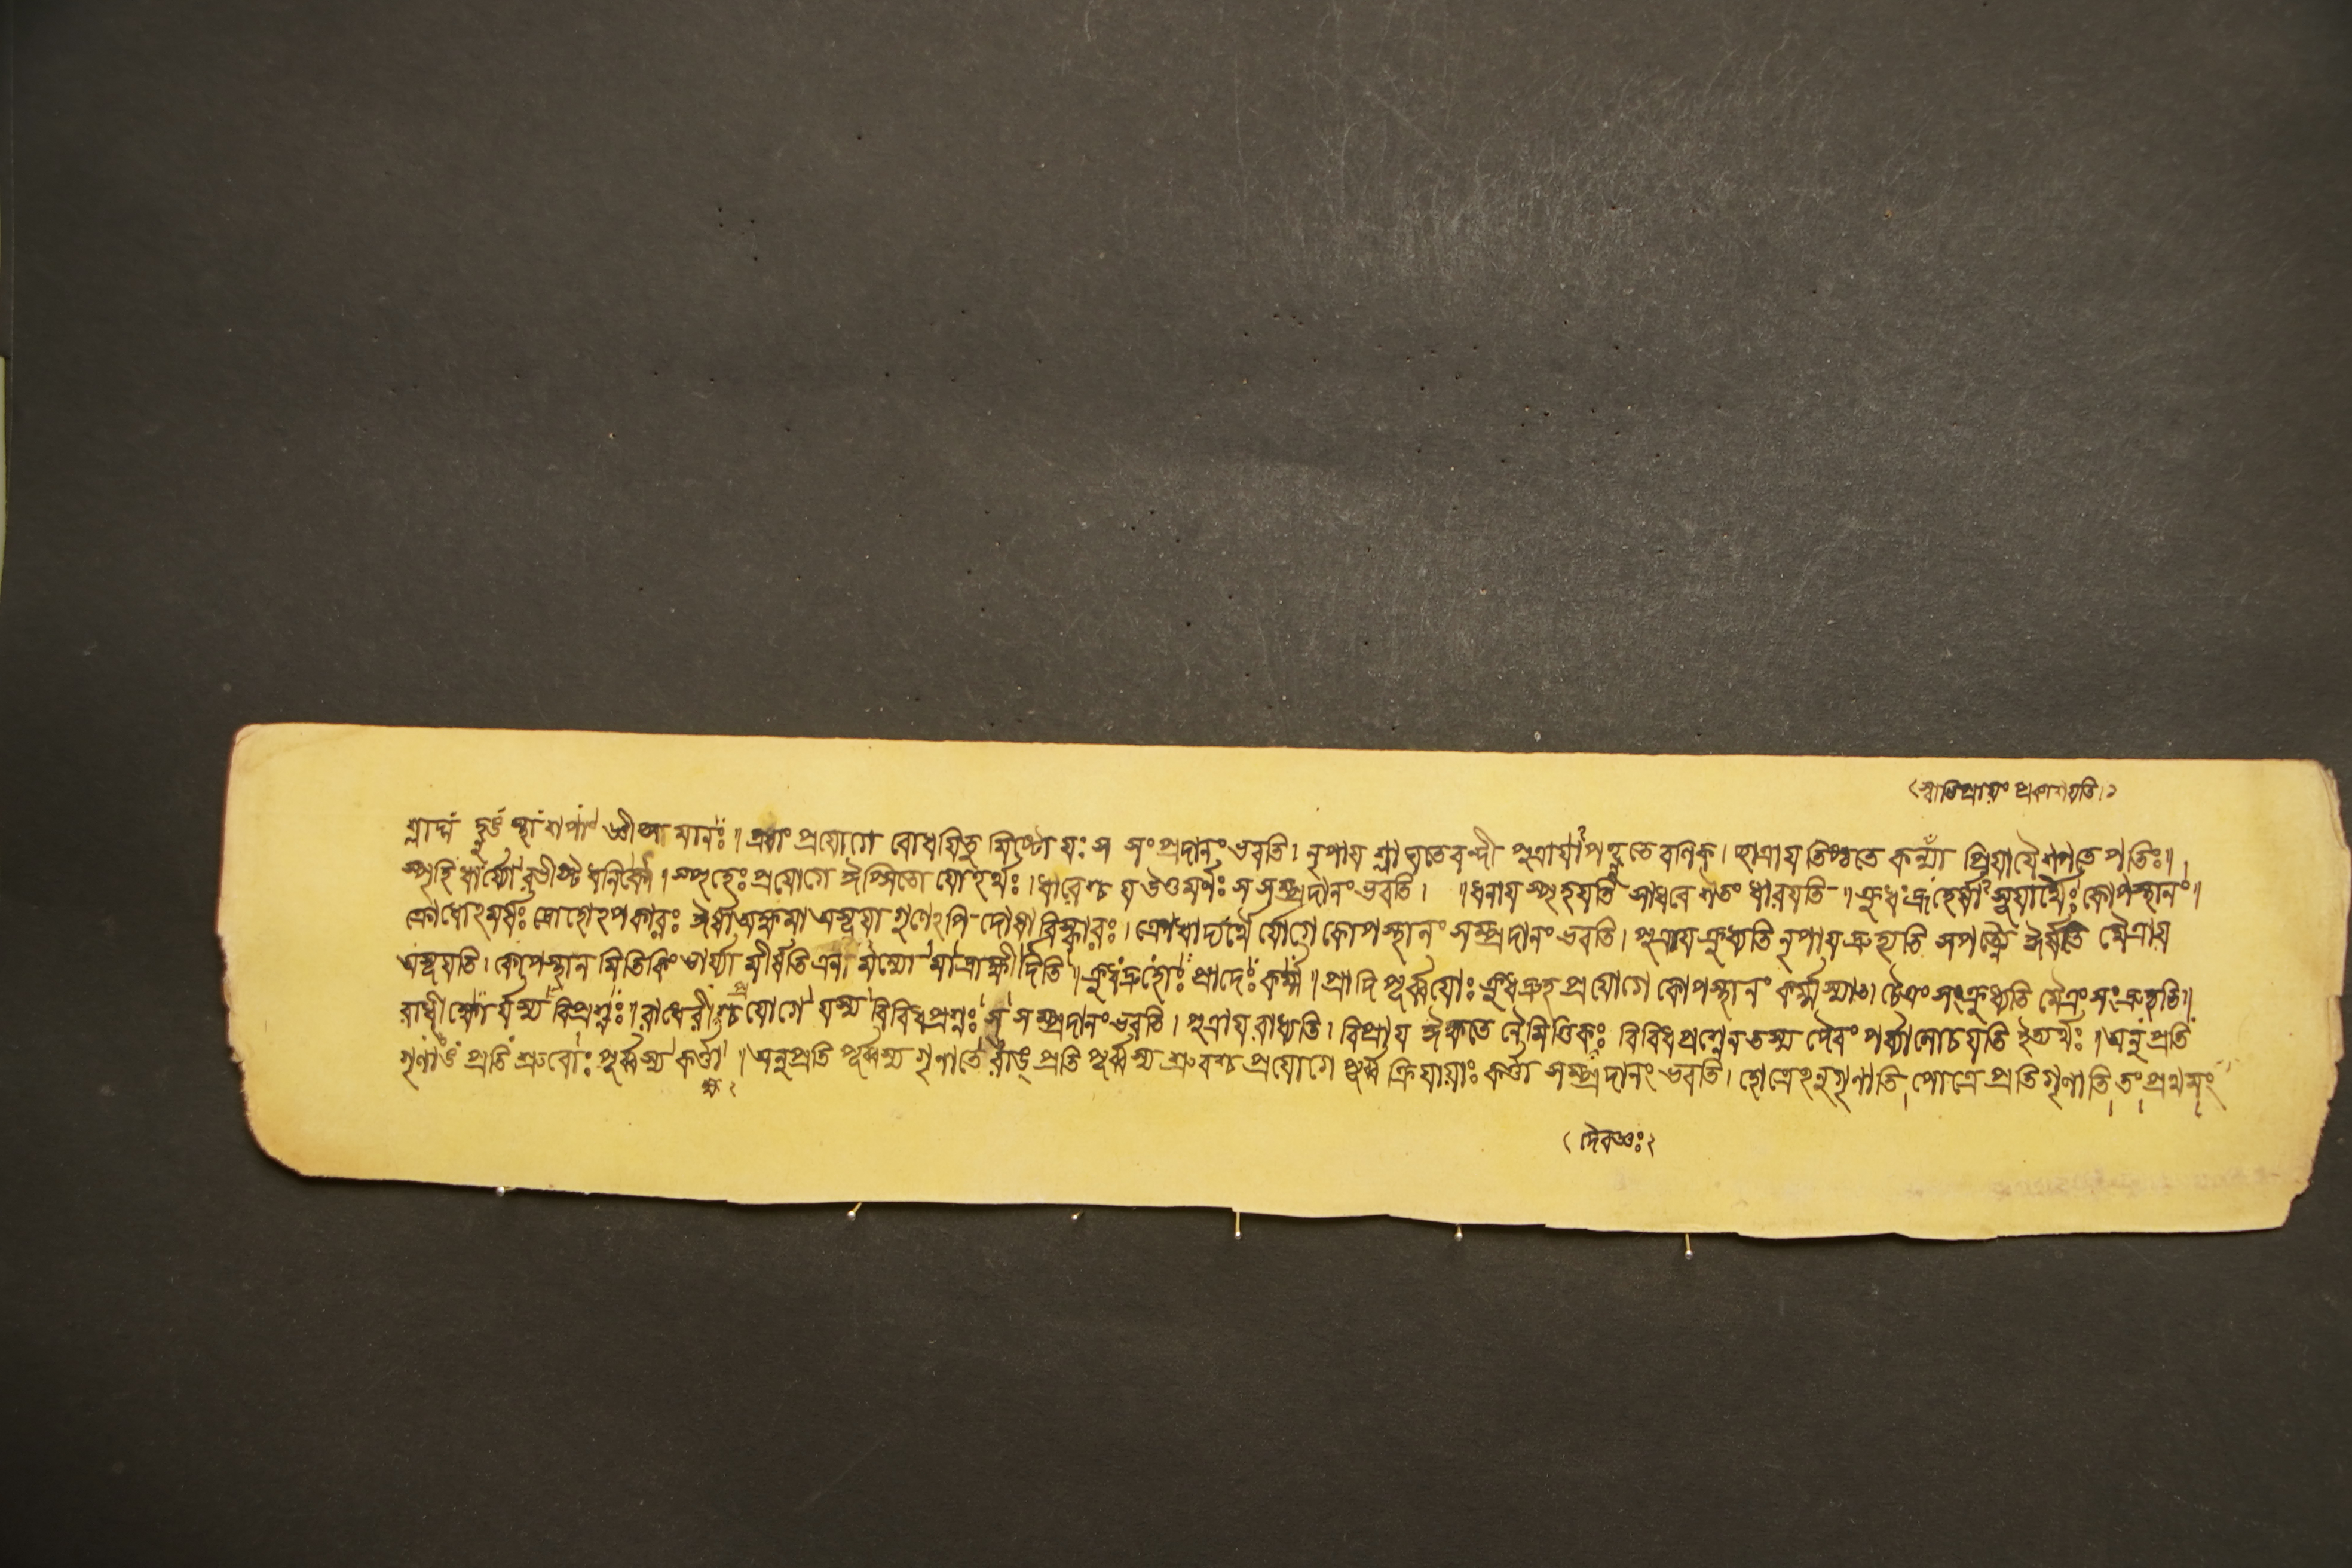 (স্বাভিপ্রায়ং প্রকাশয়তি।)
শ্লাঘ হ্নুঙ স্থা শপাং জ্ঞীপ্স্যমানঃ॥ এষাং প্রয়োগে বোধয়িতু মিষ্টো যঃ স সংপ্রদানং ভবতি। নৃপায শ্লাঘতে বন্দী পুত্রাযাপহ্নুতে বণিক্। ছাত্রায তিষ্ঠতে কন্যা প্রিয়ায়ৈ শপতে পতিঃ॥
স্পৃহি ধার্য্যো রভীষ্ট ধনিকৌ। স্পৃহেঃ প্রযোগে ঈপ্সিতো যোঽর্থঃ। ধারেশ্চ য উত্তমর্ণঃ স সম্প্রদানং ভবতি। ॥ ধনায স্পৃহযতি সাধবে শতং ধারযতি॥ ক্রুধ দ্রুহের্ষাসূযার্থৈঃ কোপস্থানং॥
ক্রোধোঽমর্ষঃ দ্রোহোঽপকারঃ ঈর্ষা অক্ষমা অসূযা গুণেঽপি দোষাবিষ্কারঃ। ক্রোধাদ্যর্থৈ র্যোগে কোপস্থানং সম্প্রদানং ভবতি। পুত্রায ক্রুধ্যতি নৃপায দ্রুহ্যতি সপত্ন্যৈ ঈর্ষ্যতি মৈত্রায
অসূযতি। কোপস্থান মিতি কিং ভার্য্যা মীর্ষতি এনা মন্যো মাদ্রাক্ষীদিতি॥ ক্রুধ দ্রুহোঃ প্রাদেঃ কর্ম্ম॥ প্রাদি পূর্ব্বযোঃ ক্রুধদ্রুহ প্রযোগে কোপস্থানং কর্ম্ম স্যাৎ। চৈত্রং সংক্রুধ্যতি মৈত্রং সংদ্রুহ্যতি॥
রাধীক্ষো র্যস্য বিপ্রশ্নঃ॥ রাধেরীক্ষশ্চ প্রযোগে যস্য বিবিধপ্রশ্নঃ স সম্প্রদানং ভবতি। পুত্রায রাধ্যতি। বিপ্রায ঈক্ষতে নৈমিত্তিকঃ বিবিধপ্রশ্নেন তস্য দৈবং পর্য্যালোচযতি ইত্যর্থঃ॥ অনু প্রতি
গৃণাঙ প্রতি শ্রুবোঃ পূর্ব্বস্য কর্ত্তা॥ অনুপ্রতি পূর্ব্বস্য গৃণাতে রাঙ্ প্রতি পূর্ব্বস্য শ্রুবশ্চ প্রযোগে পূর্ব্ব ক্রিযায়াঃ কর্ত্তা সম্প্রদানং ভবতি। হোত্রেঽনুগৃণাতি পোত্রে প্রতিগৃণাতি তং প্রথমং
ক্ষ২
(দৈবজ্ঞঃ)